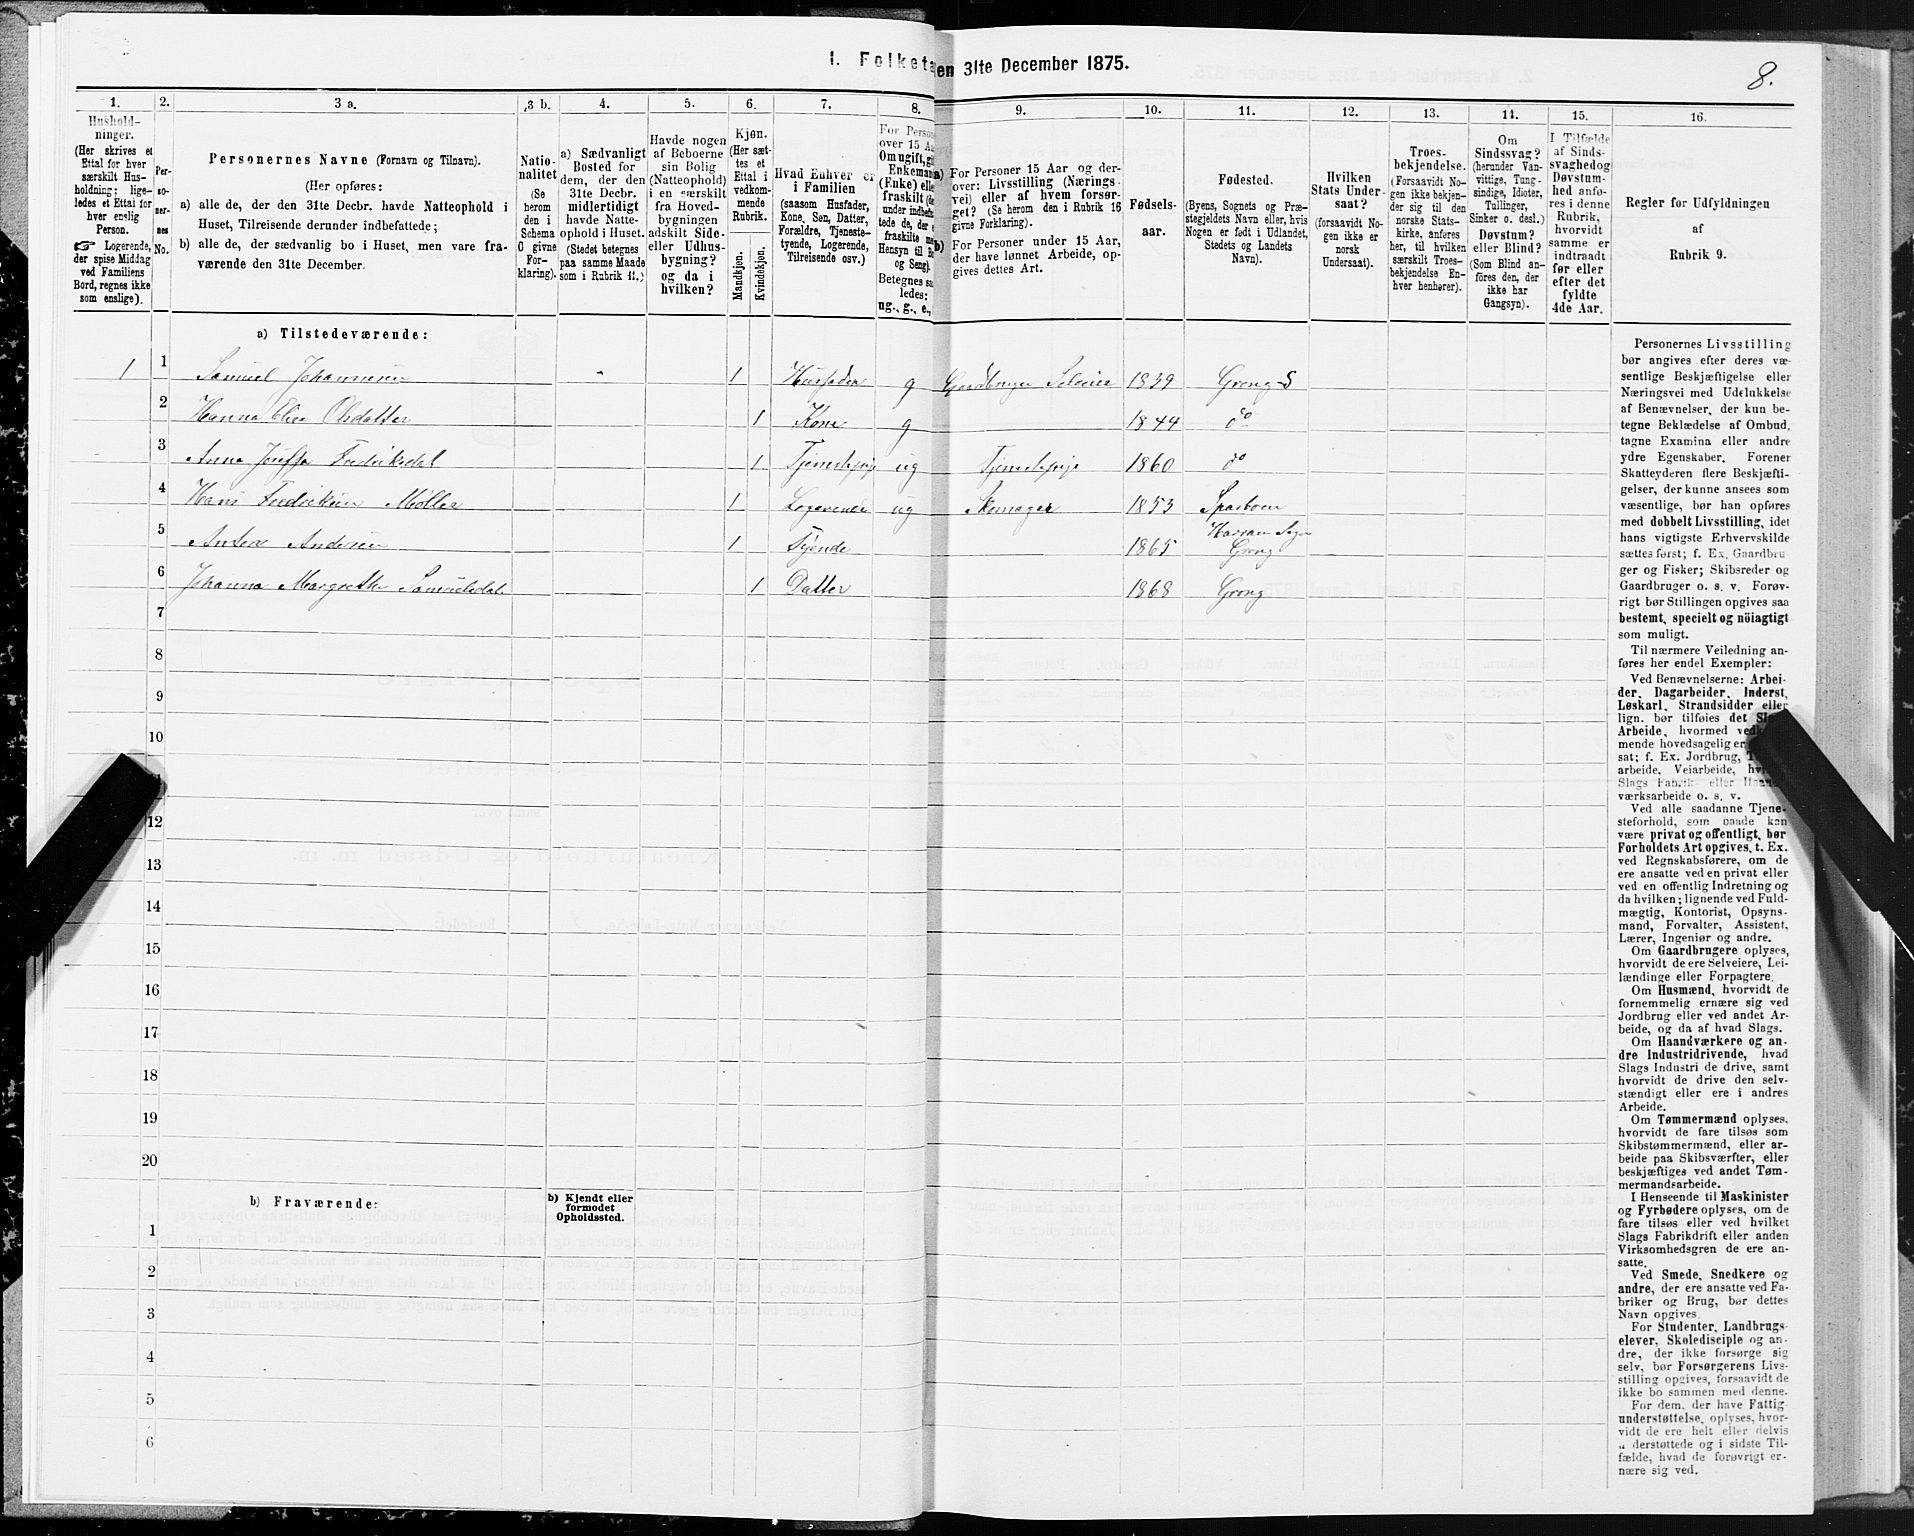 1. Folketæ
en 31te December 1875.
8.
1.
2.
3 a.
3 b.
4.
5.
6.
7.
8.
9.
10.
11.
12.
13.
14.
15.
16.
Hushold-
ninger.
(Her skrives et
Ettal for hver
særskilt Hus-
holdning; lige-
ledes et Ettal for
hver enslig
Person.
☞ Logerende,
der spise Middag
ved Familiens
Bord, regnes ikke
som enslige).
Per-
so-
ner-
nes
No.
Personernes Navne (Fornavn og Tilnavn).
(Her opføres:
a) alle de, der den 31te Decbr. havde Natteophold i
Huset, Tilreisende derunder indbefattede;
b) alle de, der sædvanlig bo i Huset, men vare fra-
værende den 31te December.
Natio-
nalitet
(Se
herom
den i
Schema
O givne
For-
klaring).
a) Sædvanligt
Bosted for
dem, der den
31te Decbr.
midlertidigt
havde Natte-
ophold i Huset.
(Stedet betegnes
paa samme Maade
som i Rubrik 11.)
Havde nogen
af Beboerne
sin Bolig
(Natteophold)
i en særskilt
fra Hoved-
bygningen
adskilt Side-
eller Udhus-
bygning?
og da i
hvilken?
Kjøn.
(Her sæt-
tes et
Ettal i
vedkom-
mende
Rubrik.
Mandkjøn.
Kvindekjøn.
Hvad Enhver er
i Familien
(saasom Husfader,
Kone, Søn, Datter,
Forældre, Tjeneste-
tyende, Logerende,
Tilreisende osv.)
For Person
over 15 Aa
Om ugift, gi
Enkeman
(Enke) elle
fraskilt (de
under indbefa
tede de, der
fraskilte m
Hensyn til B
og Seng).
Betegnes sa
ledes:
ug., g., e.,
a) For Personer 15 Aar og der-
over: Livsstilling (Nærings-
vei) eller af hvem forsør-
get? (Se herom den i Rubrik 16
givne Forklaring).
b) For Personer under 15 Aar,
der have lønnet Arbeide, op-
gives dettes Art.
Fødsels-
aar.
Fødested.
(Byens, Sognets og Præ-
stegjeldets Navn eller, hvis
Nogen er født i Udlandet,
Stedets og Landets
Navn).
Hvilken
Stats Under-
saat?
(forsaavidt No-
gen ikke er
norsk
Undersaat).
Troes-
bekjendelse.
(Forsaavidt No-
gen ikke bekjen-
der sig til den
norske Stats-
kirke, anføres
her, til hvilken
særskilt Troes-
bekjendelse En-
hver henhører).
Om
Sindssvag?
(herunder Van-
vittige, Tung-
sindige, Idioter,
Tullinger,
Sinker o. desl.)
Døvstum?
eller Blind?
(Som Blind an-
føres den, der
ikke har
Gangsyn).
I Tilfælde
af Sinds-
svaghed og
Døvstum-
hed anfø-
res i denne
Rubrik,
hvorvidt
samme er
indtraadt
før eller
efter det
fyldte
4de Aar.
Regler for Udfyldningen
af
Rubrik 9.
a) Tilstedeværende:
1 1 Samuel Johannesen " 1 Husfader g Gaardbruger Selveier 1839 Grong S
2 Hanna Elise Olsdatter 1 Kone g 1844 do
3 Anna Josefa Fredriksdat 1 Tjenestepige ug Tjenestepige 1860 do
4 Hans Fredriksen Møller 1 Logerende ug Skomager 1853 Sparboen
Harran Sogn
5 Anton Andersen 1 Tyende 1865 Grong
6 Johanna Margrethe Samuelsdat. 1 Datter 1868 Grong
7
8
9
10
12
13
14
15
16
17
18
19
20
b) Fraværende:
b) Kjendt eller
formodet
Opholdssted.
1
2
3
4
5
6
Personernes Livsstilling
bør angives efter deres væ-
sentlige Beskjæftigelse eller
Næringsvei med Udelukkelse
af Benævnelser, der kun be-
tegne Beklædelse af Ombud,
tagne Examina eller andre
ydre Egenskaber. Forener
Skatteyderen flere Beskjæfti-
gelser, der kunne ansees som
væsentlige, bør han opføres
med dobbelt Livsstilling, idet
hans vigtigste Erhvervskilde
sættes først; f. Ex. Gaardbru-
ger og Fisker; Skibsreder og
Gaardbruger o. s. v. Forøv-
rigt bør Stillingen opgives saa
bestemt, specielt og nöiagtigt
som muligt.
Til nærmere Veiledning an-
føres her endel Exempler:
Ved Benævnelserne: Arbei-
der, Dagarbeider, Inderst,
Løskarl, Strandsidder eller
lign. bør tilføies det Sla
Arbeide, hvormed vedk
mende hovedsagelig er
sat; f. Ex. Jordbrug, T
arbeide, Veiarbeide, hv
Slags Fabrik- eller Haan
værksarbeide o. s. v.
Ved alle saadanne Tjene-
steforhold, som baade kan
være privat og offentligt, bør
Forholdets Art opgives, t. Ex.
ved Regnskabsførere, om de
ere ansatte ved en privat eller
ved en offentlig Indretning og
da hvilken; lignende ved Fuld-
mægtig, Kontorist, Opsyns-
mand, Forvalter, Assistent,
Lærer, Ingeniør og andre.
Om Gaardbrugere oplyses,
hvorvidt de ere Selveiere, Lei-
lændinge eller Forpagtere.
Om Husmænd, hvorvidt de
fornemmelig ernære sig ved
Jordbrug eller ved andet Ar-
beide, og da af hvad Slags.
Om Haandværkere og an-
dre Industridrivende, hvad
Slags Industri de drive, samt
hvorvidt de drive den selv-
stændigt eller ere i andres
Arbeide.
Om Tømmermænd oplyses,
hvorvidt de fare tilsøs som
Skibstømmermænd, eller ar-
beide paa Skibsværfter, eller
beskjæftiges ved andet Tøm-
mermandsarbeide.
I Henseende til Maskinister
og Fyrbødere oplyses, om de
fare tilsøs eller ved hvilket
Slags Fabrikdrift eller anden
Virksomhedsgren de ere an-
satte.
Ved Smede, Snedkere og
andre, der ere ansatte ved Fa-
briker og Brug, bør dettes
Navn opgives
For Studenter, Landbrugs-
elever, Skoledisciple og an-
dre, der ikke forsørge sig
selv, bør Forsørgerens Livs-
stilling opgives, forsaavidt de
ikke bo sammen med denne.
For dem, der have Fattig-
understøttelse, oplyses, hvor-
vidt de ere helt eller delvis
understøttede og i sidste Til-
fælde, hvad de forøvrigt er-
nære sig ved.